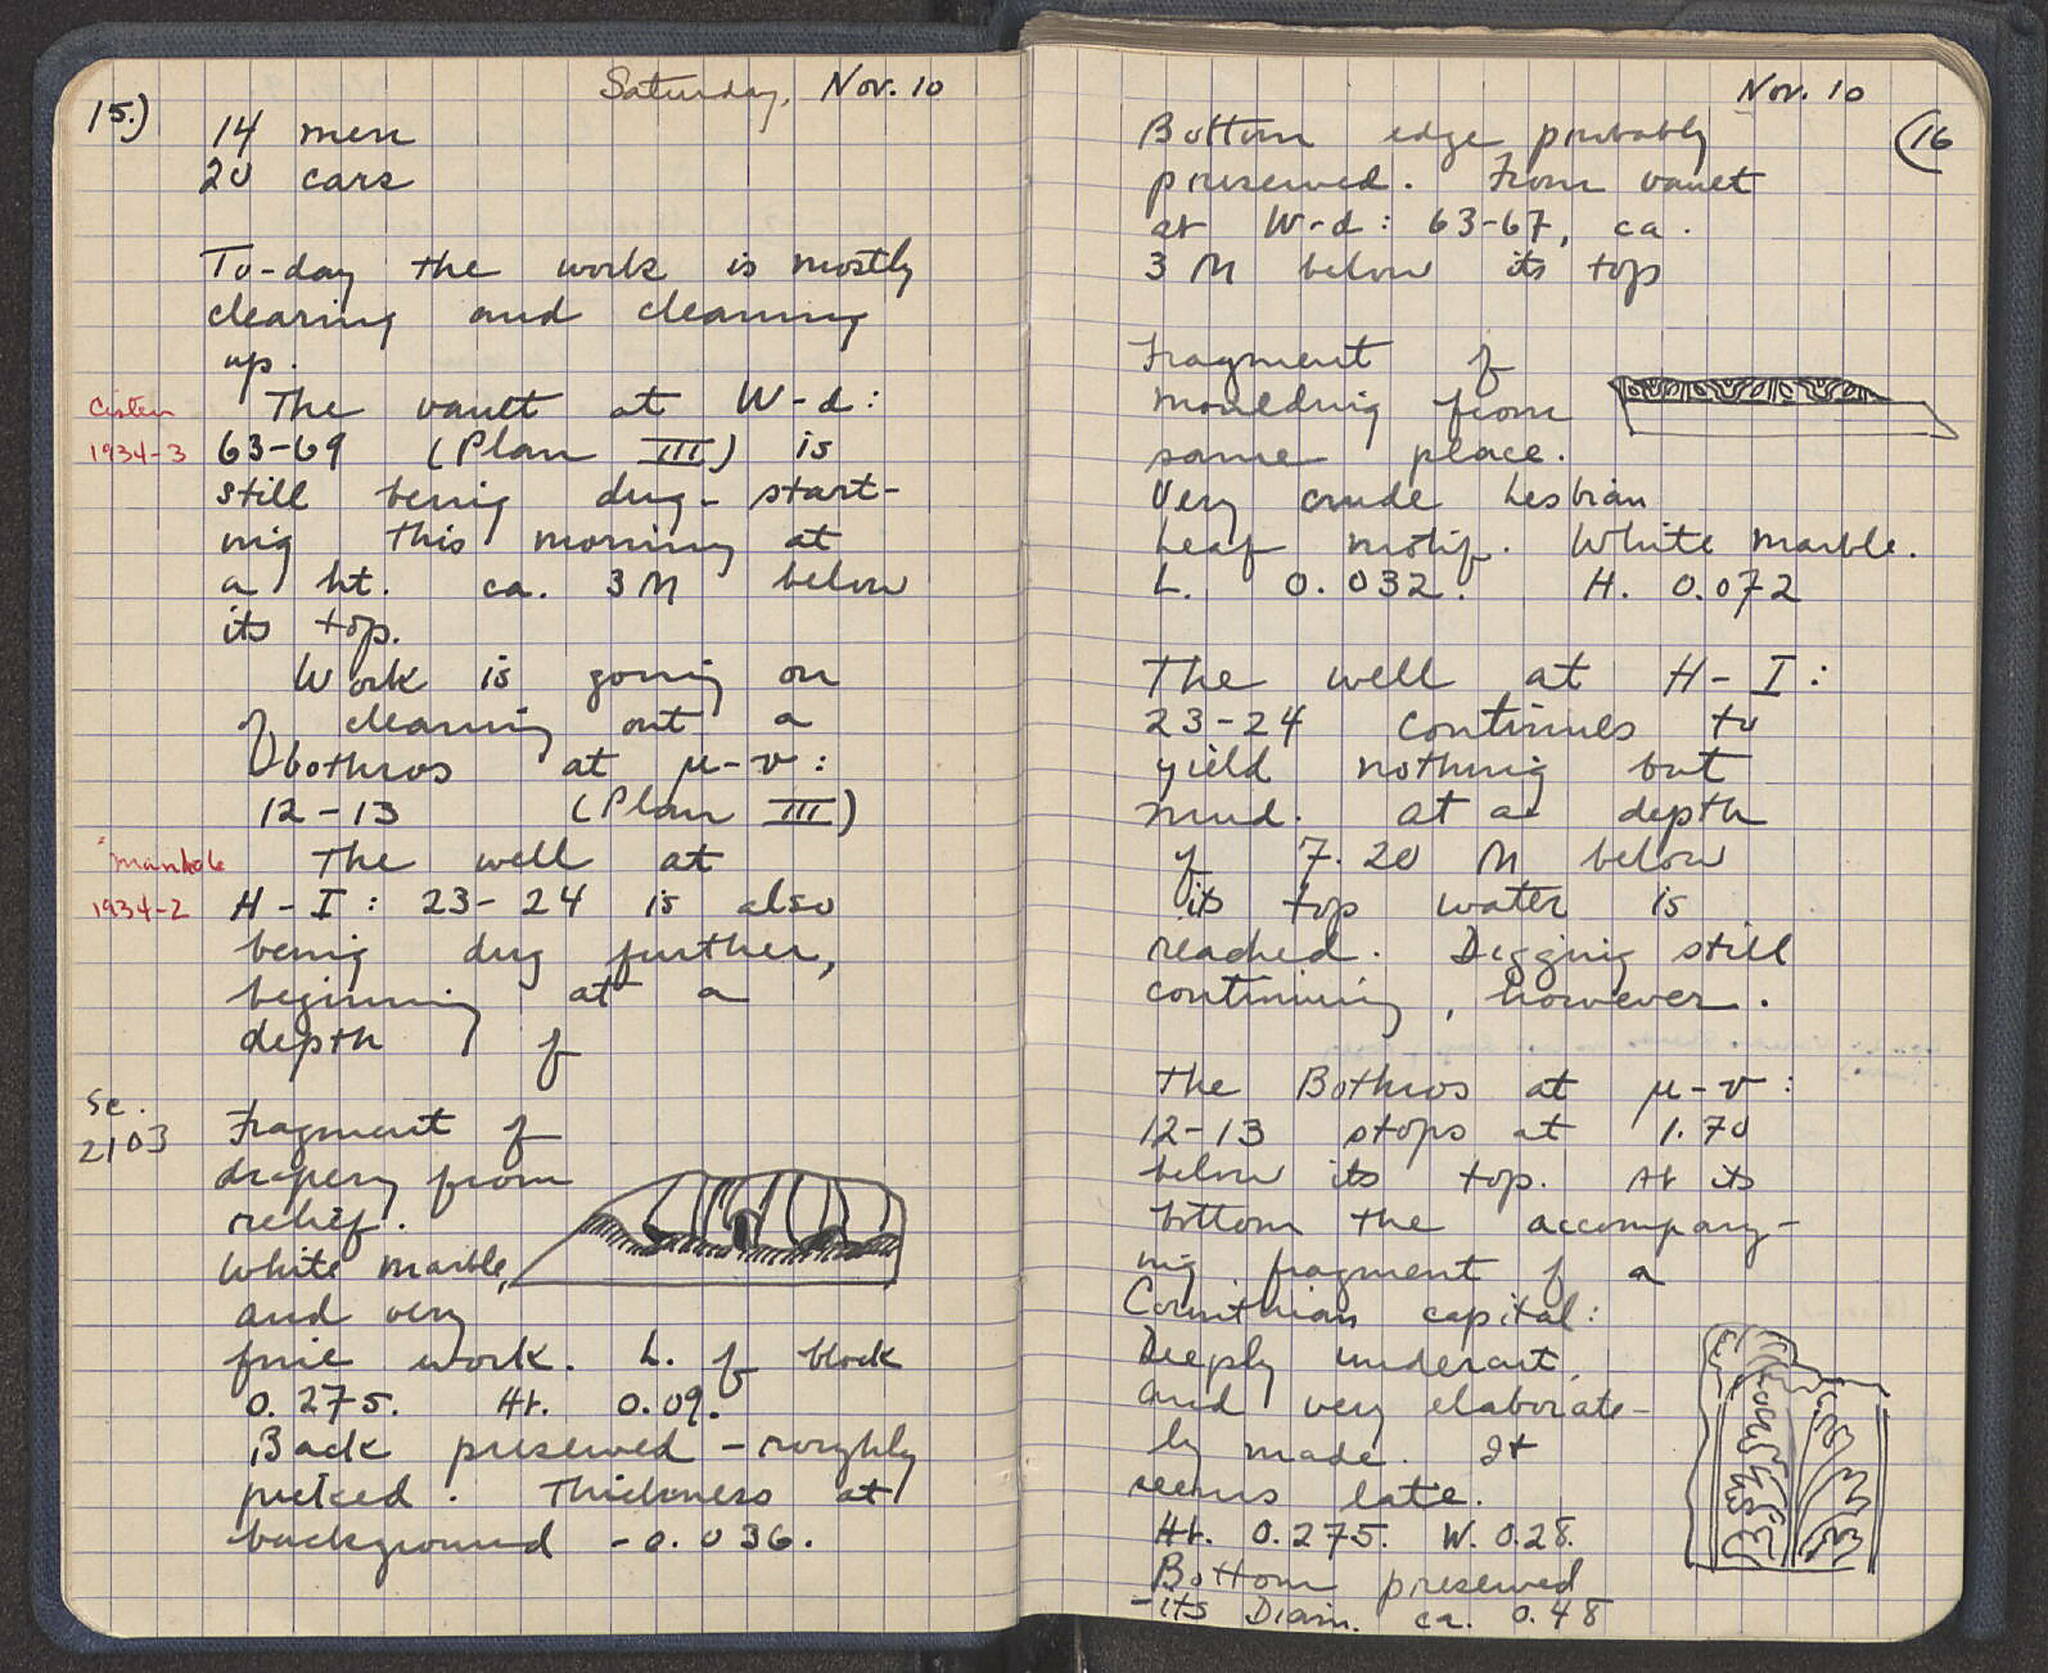 15.)
Saturday, Nov. 10
14 men
20 cars
To-day the work is mostly
clearing and cleaning
up.
Cistern
1934-3
The vault at W-d:
63-69 (Plan III) is
still being dug - start-
ing this morning at
a ht. ca. 3 M below
its top.
Work is going on
of cleaning out a
bothros at μ-ν:
12-13 (Plan III)
"manhole
1934-2
The well at
H-I: 23-24 is also
being dug further,
beginning at a
depth of
Sc.
2103
Fragment of
drapery from
relief.
White marble,
and very
fine work. L. of block
0.275. Ht. 0.09.
Back preserved - roughly
picked. Thickness at
background - 0.036.
Nov. 10
16
Bottom edge probably
preserved. From vault
at W-d: 63-67, ca.
3 M below its top
Fragment of
moulding from
same place.
Very crude Lesbian
Leaf motif. White marble.
L. 0.032. H. 0.072
The well at H-I:
23-24 continues to
yield nothing but
mud. At a depth
of 7.20 M below
its top water is
reached. Digging still
continuing, however.
The Bothros at μ-ν:
12-13 stops at 1.70
below its top. At its
bottom the accompany-
ing fragment of a
Corinthian capital:
Deeply undercut,
and very elaborate-
ly made. It
seems late.
Ht. 0.275. W. 0.28.
Bottom preserved
- its Diam. ca. 0.48